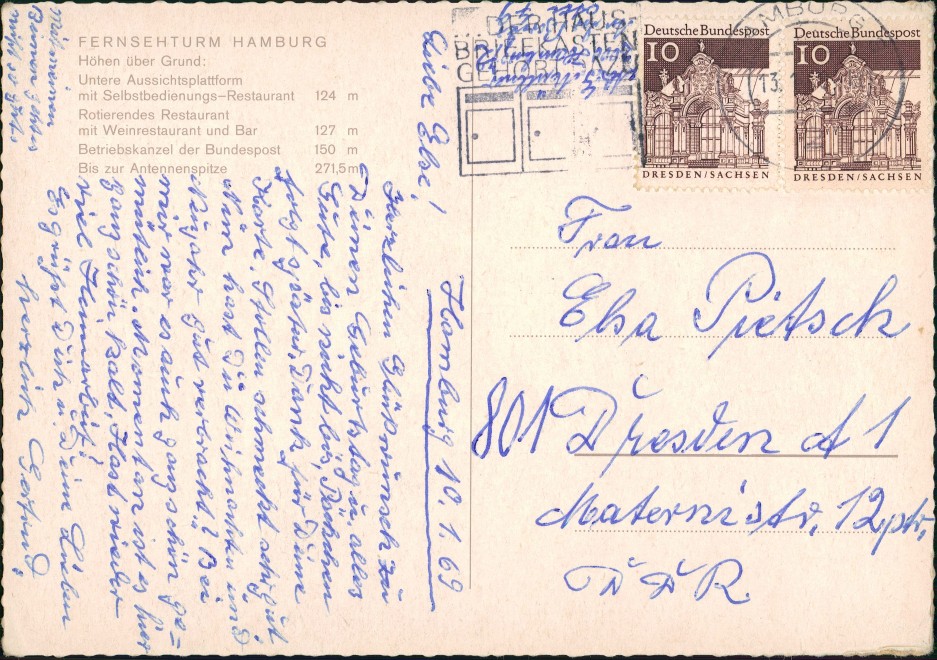 FERNSEHTURM HAMBURG
Höhen über Grund:
Untere Aussichtsplattform
mit Selbstbedienungs-Restaurant 124 m
Rotierendes Restaurant
mit Weinrestaurant und Bar 127 m
Betriebskanzel der Bundespost 150 m
Bis zur Antennenspitze 271,5m
DER HAUS
BRIEFKASTEN
Deutsche Bundespost
10
DRESDEN/SACHSEN
Deutsche Bundespost
10
DRESDEN/SACHSEN
HAMBURG
13.
Hamburg 10.1.69
Liebe Else!
Herzlichen Glückwunsch zu
Deinem Geburtstag u. alles
Gute, bis nicht bös, Päckchen
folgt später. Dank für Deine
Karte. Stollen schmeckt sehr gut
Nun hast Du Weihnachten und
Neujahr gut verbracht? Bei
mir war es auch ganz schön ge=
mütlich. Momentan ist es hier
ganz schön kalt. Hast wieder
viel Heimarbeit?
Es grüßt Dich u. Deine Lieben
herzlich
Frau
Elsa Pietsch
801 Dresden A 1
Maternistr. 12 ptr.
DDR.